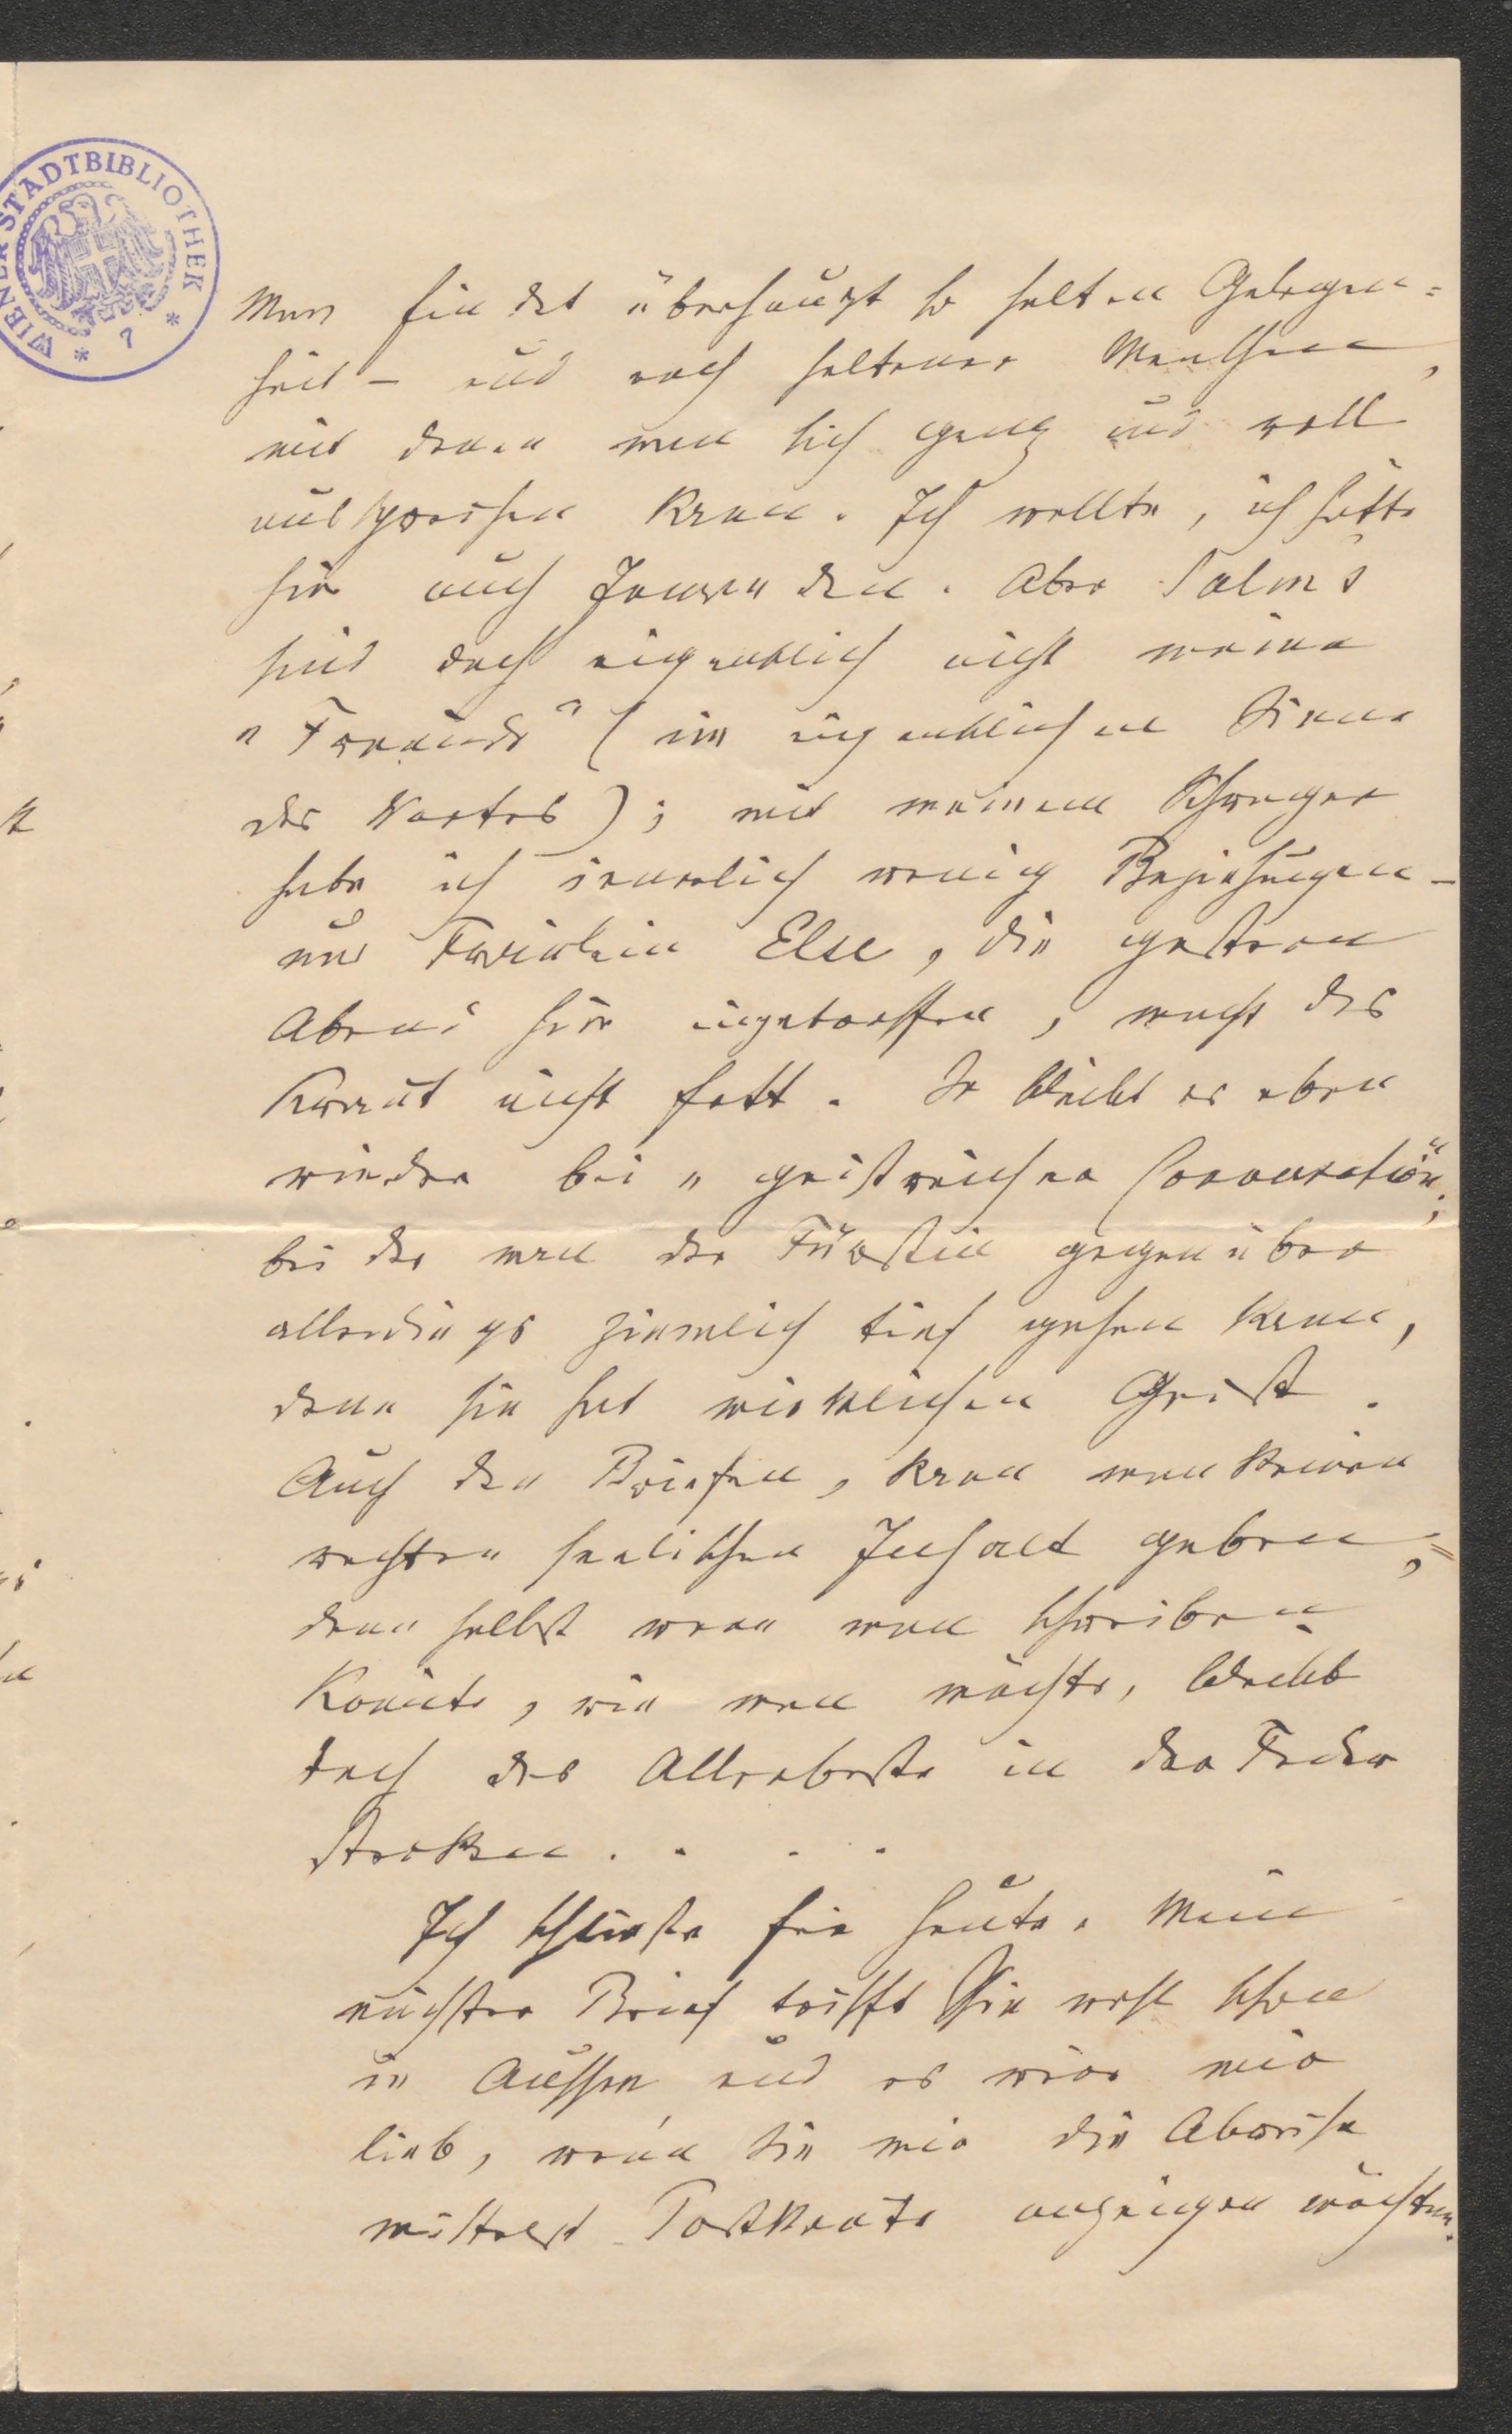 WIENER STADTBIBLIOTHEK
* 7 *
Man findet überhaupt so selten Gelegen=
heit – und noch seltener Menschen,
mit denen man sich ganz und voll
aussprechen kann. Ich wollte, ich hätte
hier auch Jemanden. Aber Salms
sind doch eigentlich nicht meine
„Freunde" (im eigentlichen Sinne
des Wortes); mit meinem Schwager
habe ich innerlich wenig Beziehungen –
und Fräulein Else, die gestern
Abend hier eingetroffen, macht das
Kraut nicht fett. So bleibt es eben
wieder bei „geistreicher Conversation",
bei der man der Fürstin gegenüber
allerdings ziemlich tief gehen kann,
denn sie hat wirklichen Geist.
Auch den Briefen, kann man keinen
rechten seelischen Inhalt geben,=
denn selbst wenn man schreiben
könnte, wie man möchte, bleibt
doch das Allerbeste in der Feder
stecken. . . .
Ich schließe für heute. Mein
nächster Brief trifft Sie wohl schon
in Aussee und es wäre mir
lieb, wenn Sie mir die Abreise
mittelst Postkarte anzeigen möchten.